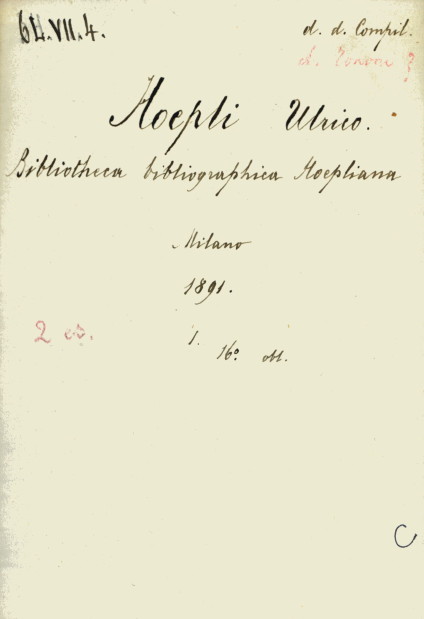 64.VII.4.
d. d. Compil.
d. Tonone ?
Hoepli Ulrico.
Bibliotheca bibliographica Hoepliana
Milano
1891.
2 es.
1.
16º obl.
C